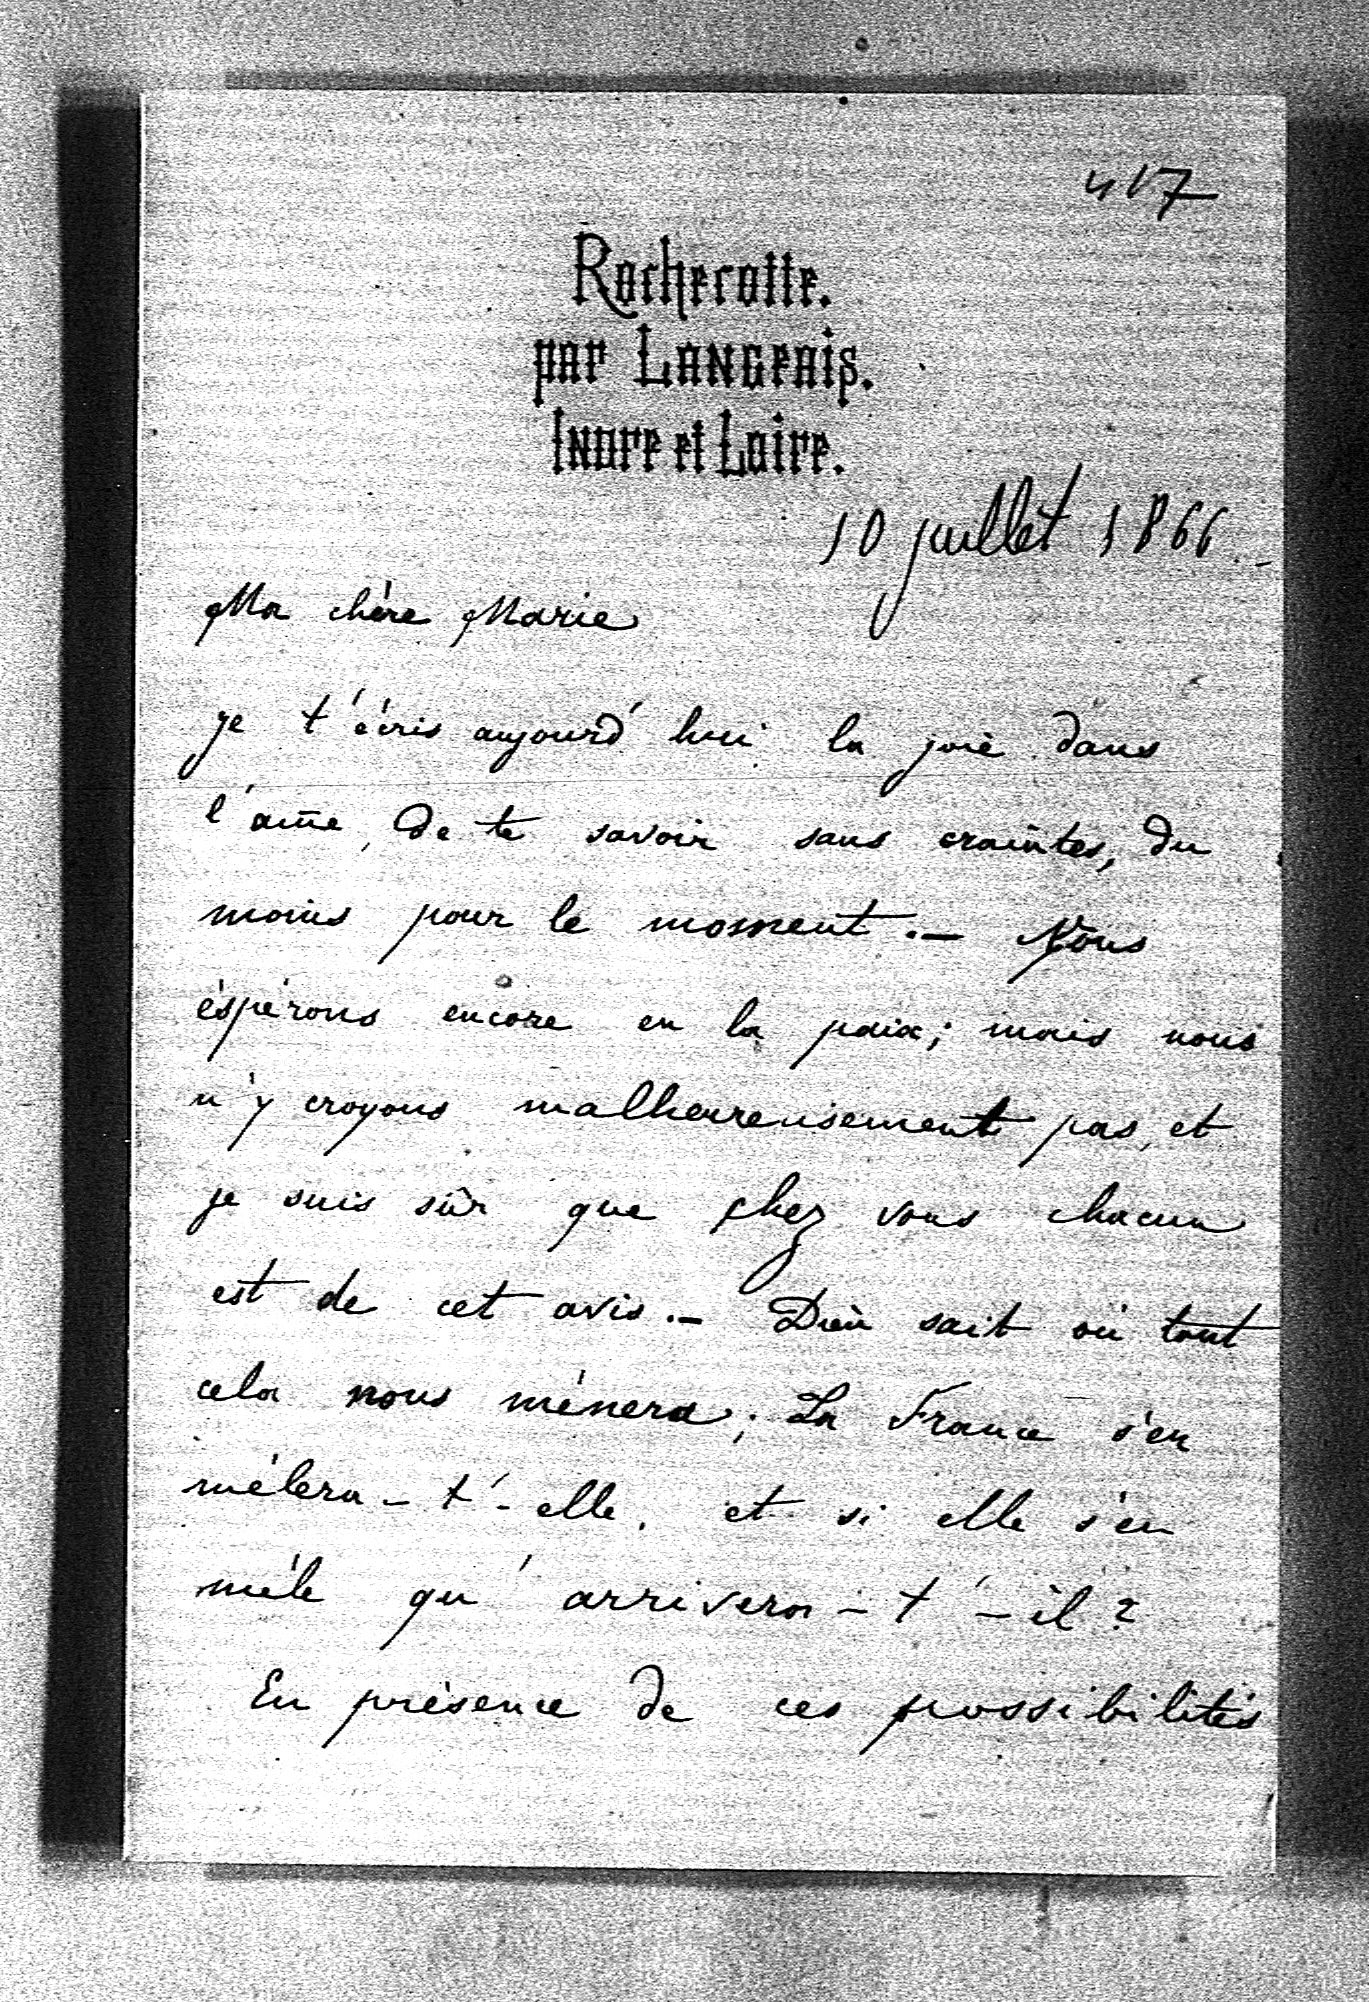 417
Rochecotte.
par Langeais.
Indre et Loire.
10 juillet 1866.-
Ma chère Marie
je t'écris aujourd'hui la joie dans
l'âme, de te savoir sans craintes, du
moins pour le moment.— Nous
éspérons encore en la paix; mais nous
n'y croyons malheureusement pas, et
je suis sûr que chez vous chacun
est de cet avis.— Dieu sait où tout
cela nous mènera; La France s'en
mêlera-t'-elle, et si elle s'en
mêle qu'arrivera-t'-il?
En présence de ces possibilités